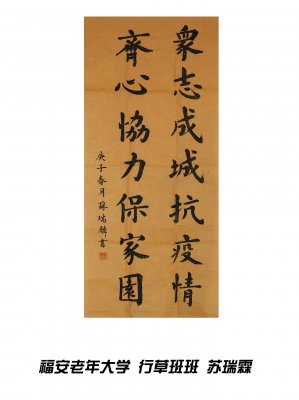 衆志成城抗疫情
齊心協力保家園
庚子春月蘇瑞霖書
福安老年大学 行草班班 苏瑞霖